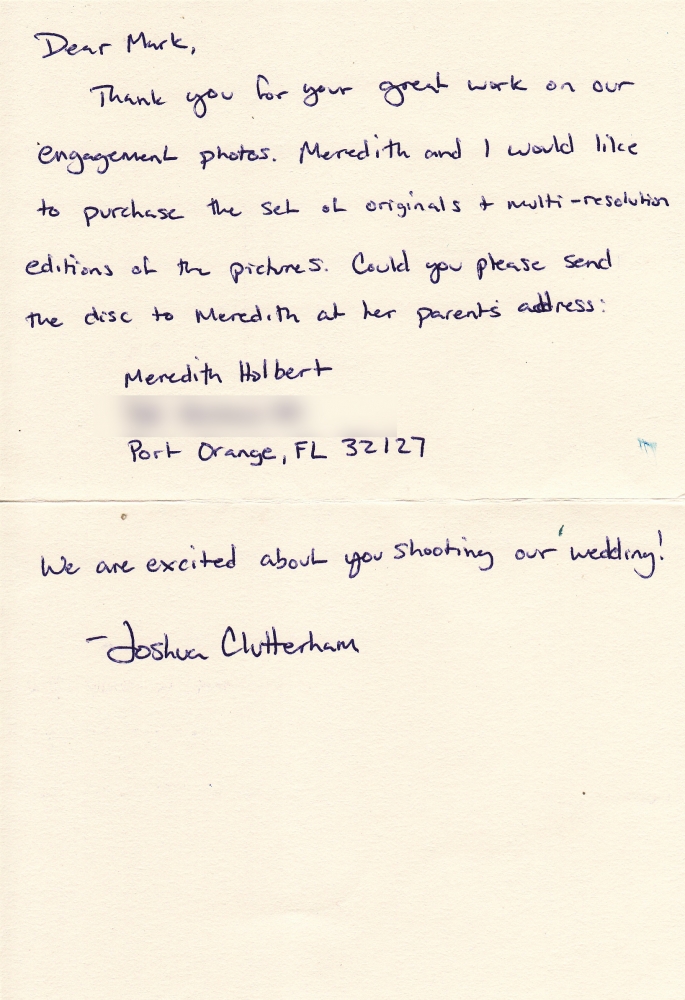 Dear Mark,
Thank you for your great work on our
engagement photos. Meredith and I would like
to purchase the set of originals + multi-resolution
editions of the pictures. Could you please send
the disc to Meredith at her parents' address:
Meredith Holbert
Port Orange, FL 32127
We are excited about you shooting our wedding!
-Joshua Clutterham